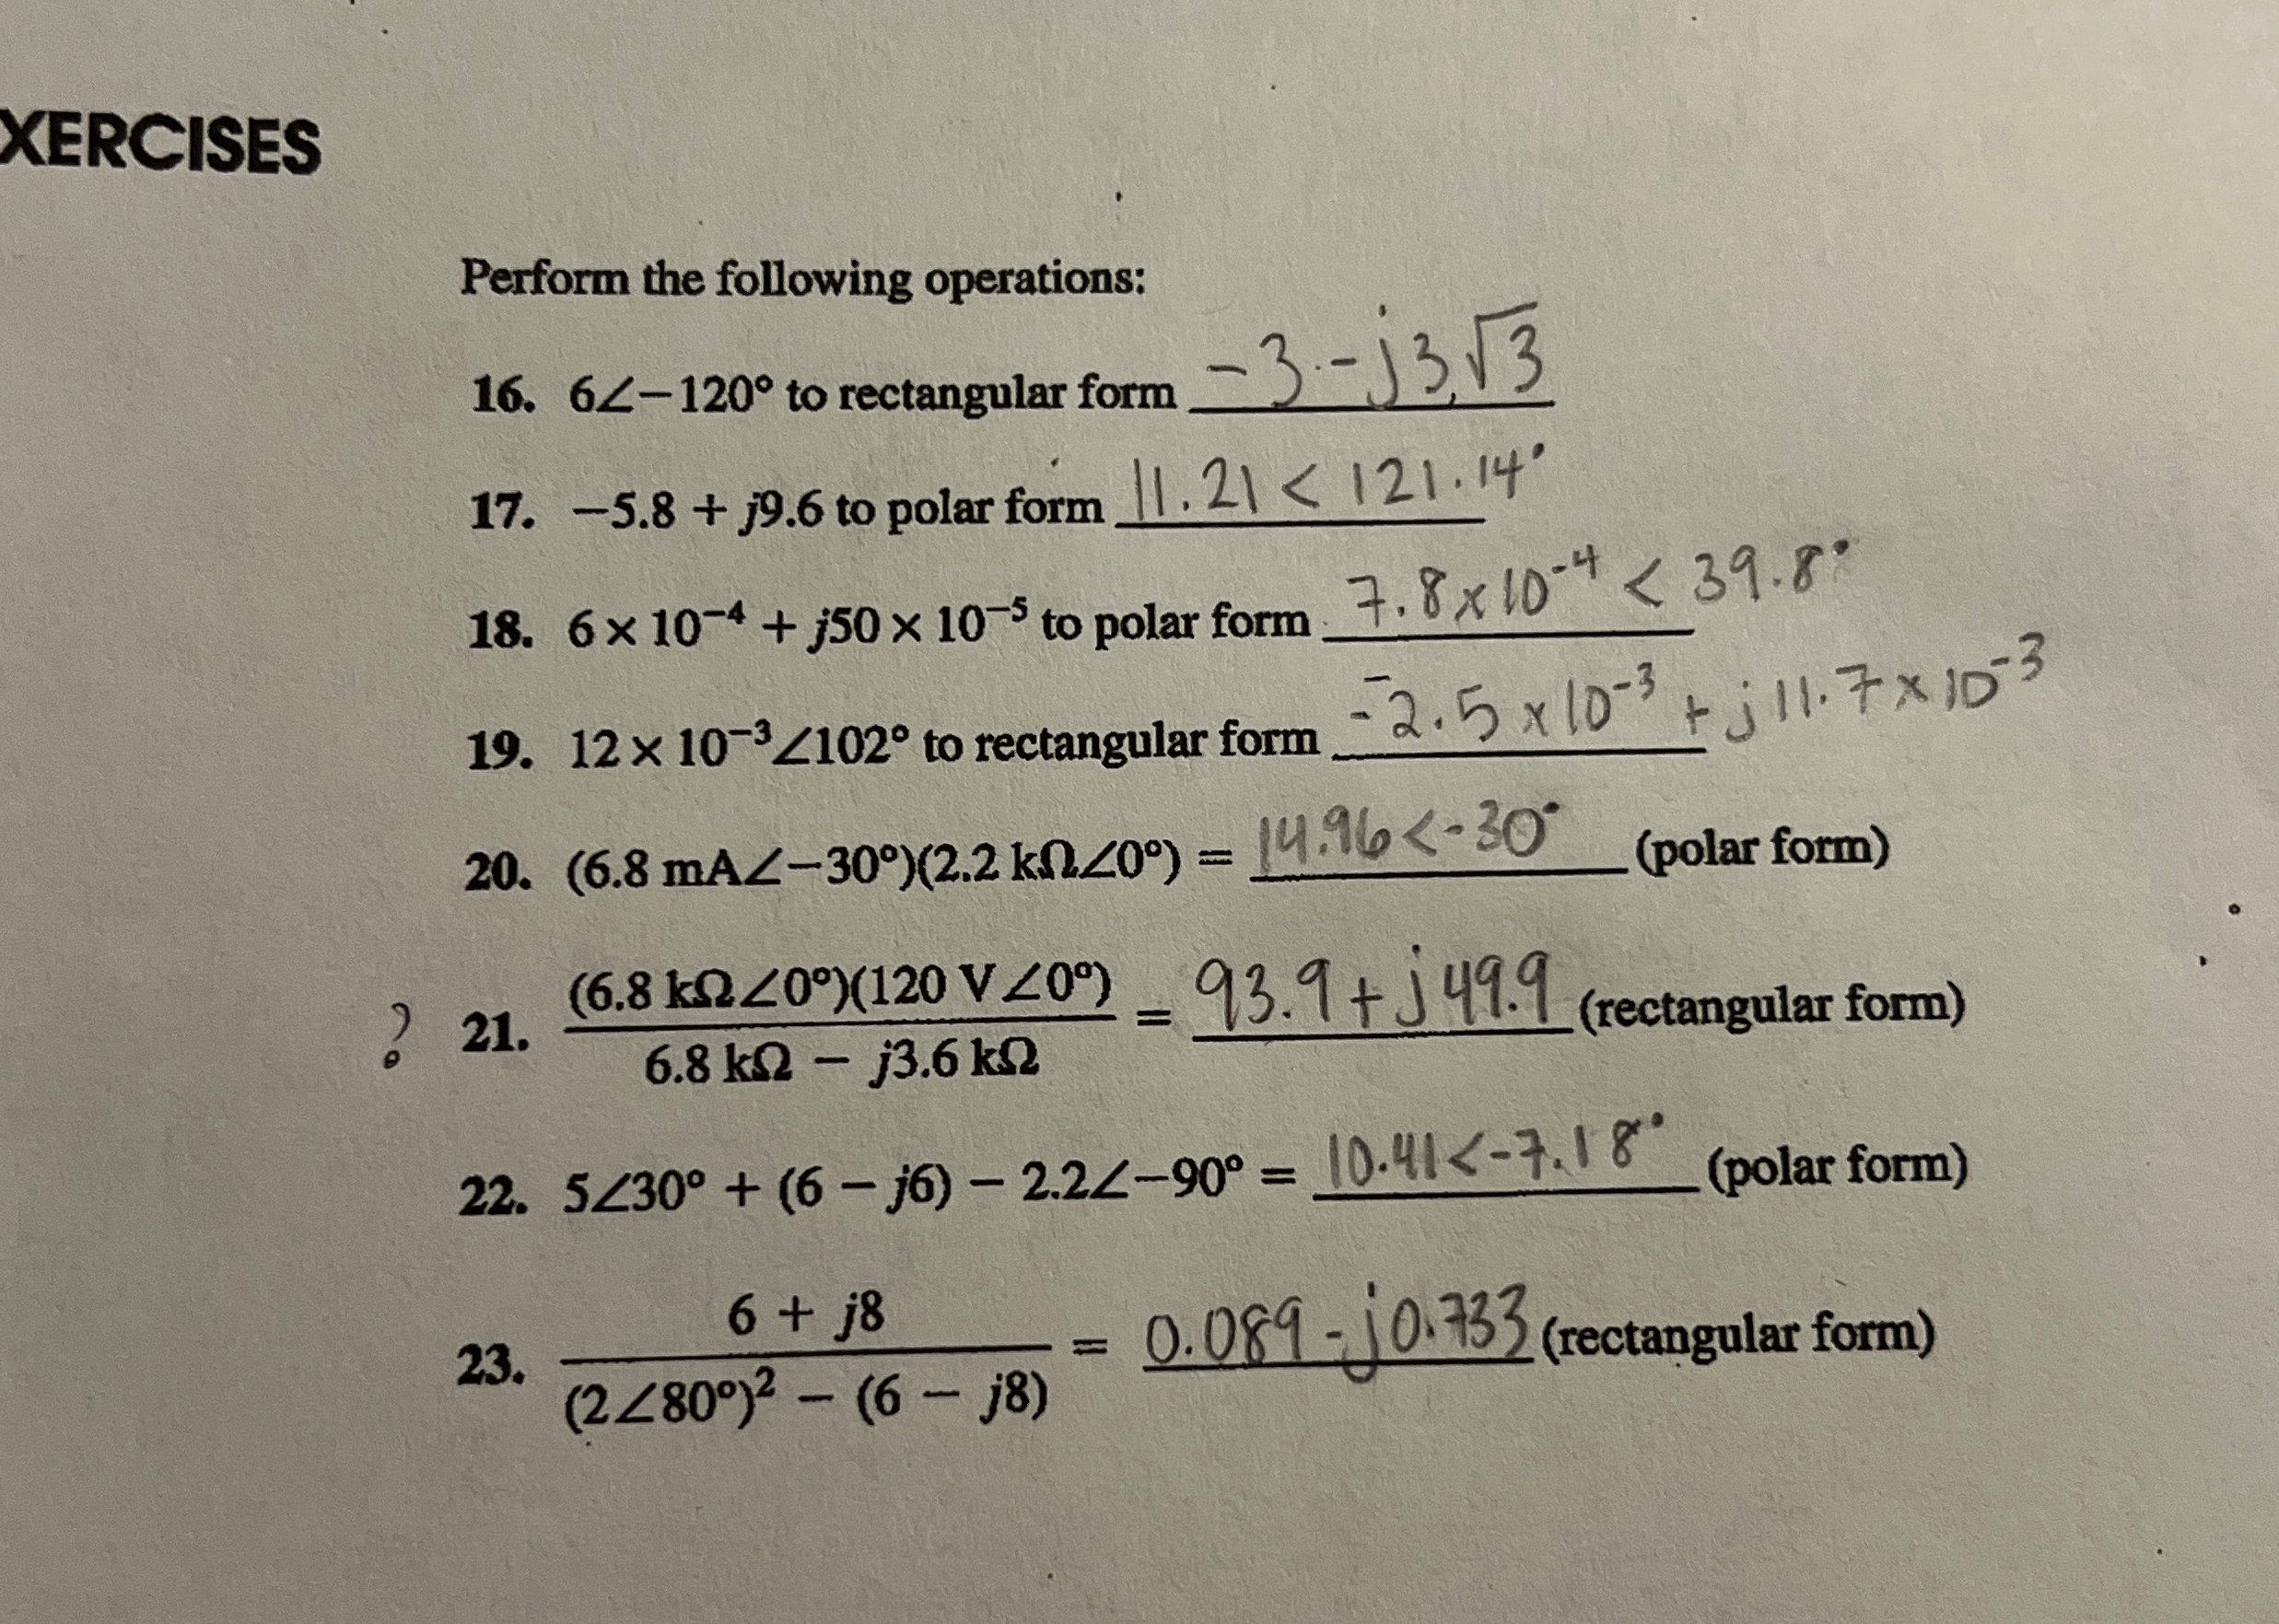 XERCISES
Perform the following operations:
16. 6∠−120° to rectangular form -3-j3√3
17. −5.8 + j9.6 to polar form 11.21 < 121.14°
18. 6 × 10⁻⁴ + j50 × 10⁻⁵ to polar form 7.8x10⁻⁴ < 39.8°
19. 12 × 10⁻³∠102° to rectangular form -2.5 x10⁻³ + j11.7 x 10⁻³
20. (6.8 mA∠−30°)(2.2 kΩ∠0°) = 14.96<-30° (polar form)
? 21. (6.8 kΩ∠0°)(120 V∠0°) / 6.8 kΩ − j3.6 kΩ = 93.9+j49.9 (rectangular form)
22. 5∠30° + (6 − j6) − 2.2∠−90° = 10.41<-7.18° (polar form)
23. 6 + j8 / (2∠80°)² − (6 − j8) = 0.089-j0.733 (rectangular form)